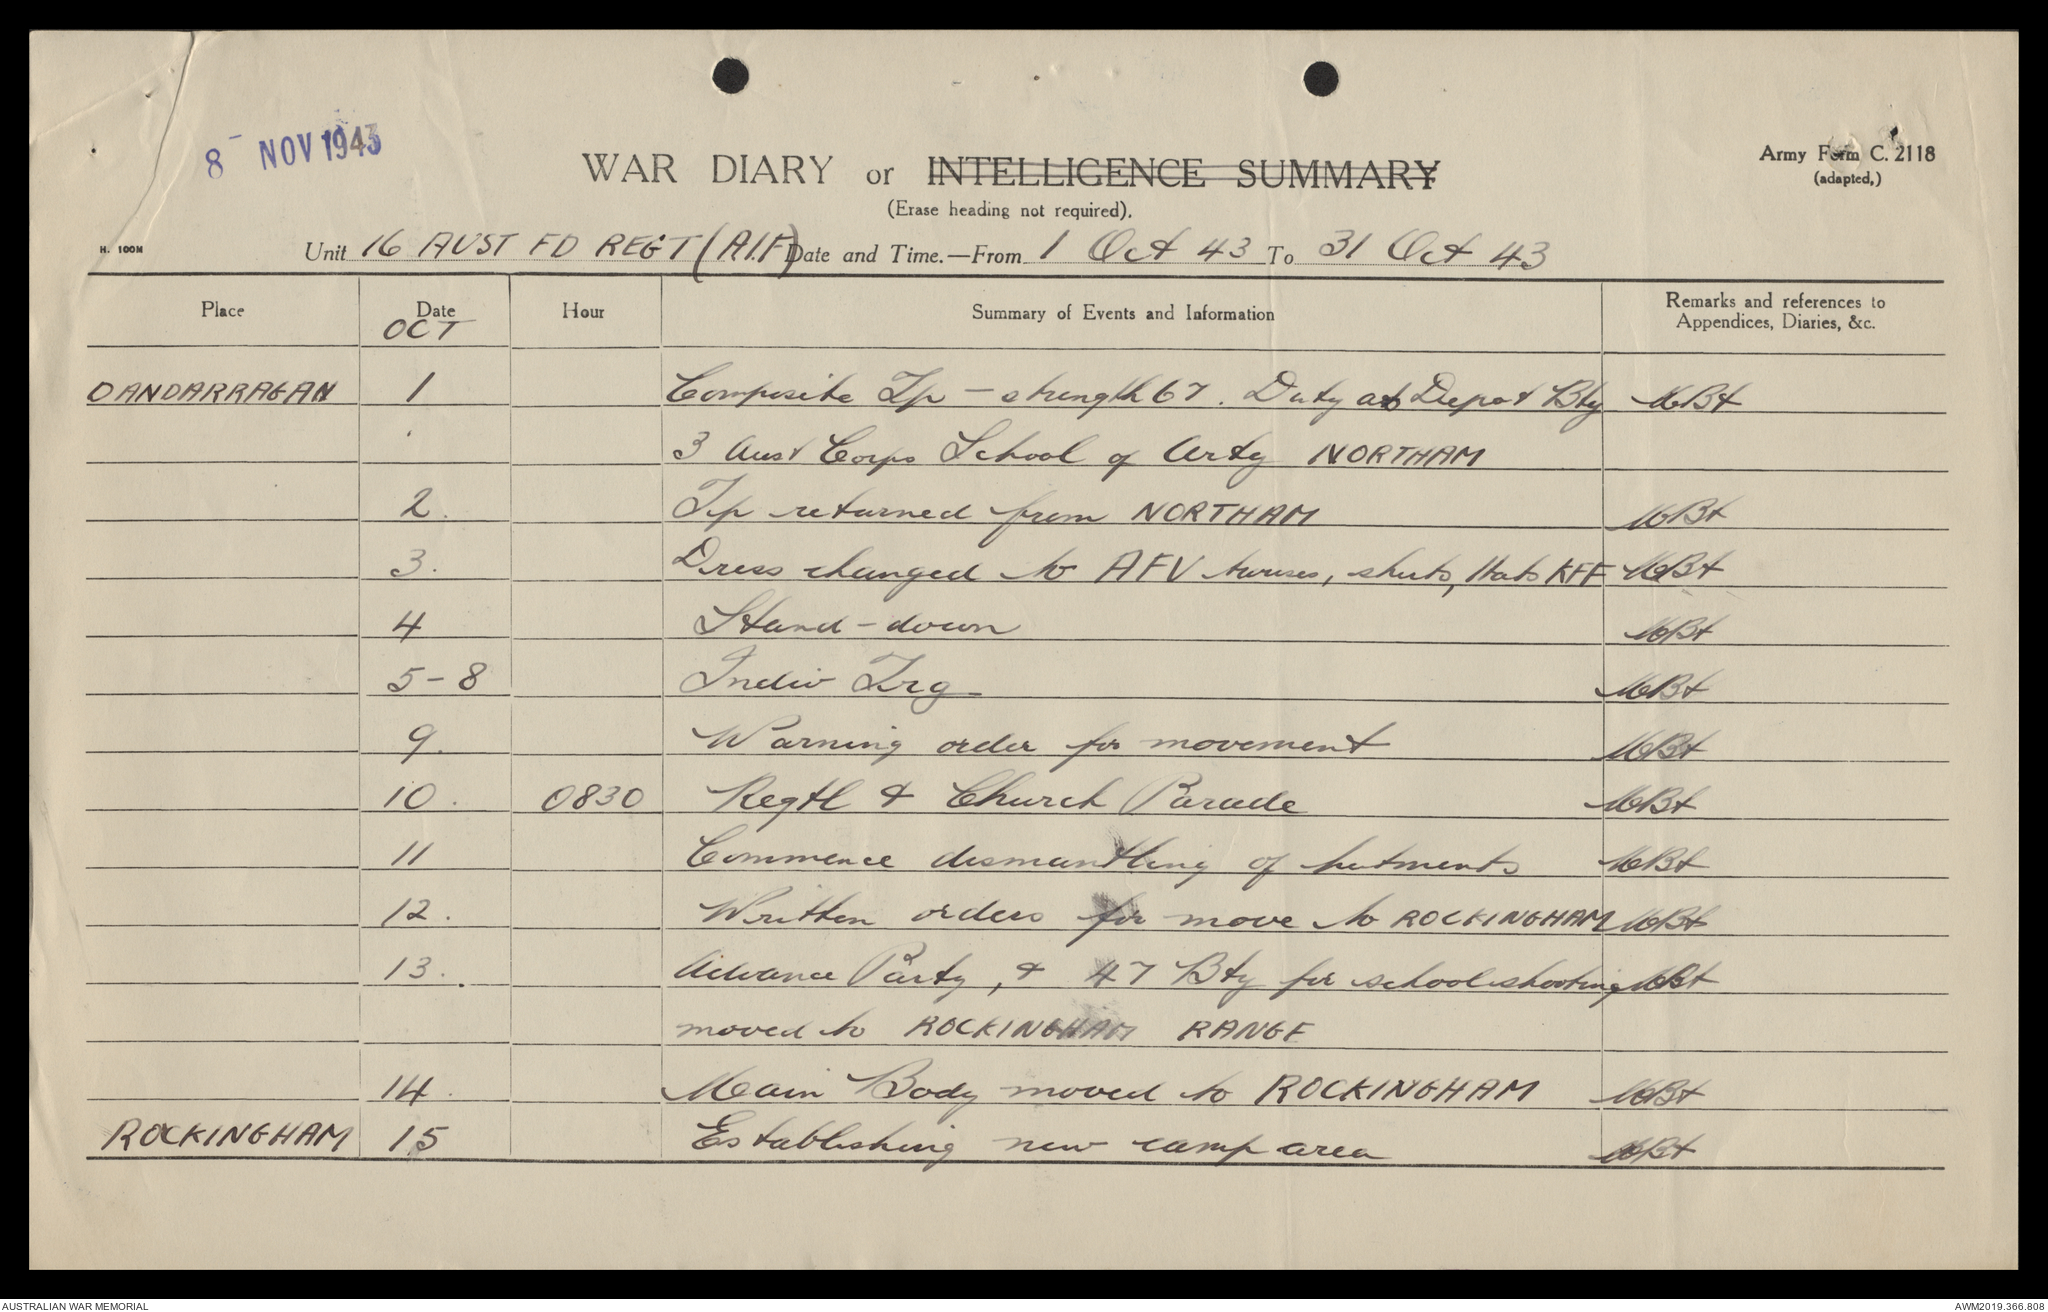 8 - NOV 1943
WAR DIARY or INTELLIGENCE SUMMARY
(Erase heading not required).
Army Form C. 2118
(adapted,)
H. 100M
Unit 16 AUST FD REGT (A.I.F) Date and Time.—From 1 Oct 43 To 31 Oct 43
Place Date Hour Summary of Events and Information Remarks and references to
Appendices, Diaries, &c.
OCT
DANDARRAGAN 1 Composite Tp - strength 67. Duty at Depot Bty
3 Aust Corps School of Arty NORTHAM
2. Tp returned from NORTHAM
3. Dress changed to AFV trouses, shirts, Hats KFF
4 Stand-down
5-8 Indiv Trg
9. Warning order for movement
10. 0830 Regtl & Church Parade
11 Commence dismantling of hutments
12. Written orders for move to ROCKINGHAM
13. Advance Party, & 47 Bty for school shooting
moved to ROCKINGHAM RANGE
14. Main Body moved to ROCKINGHAM
ROCKINGHAM 15 Establishing new camp area
AUSTRALIAN WAR MEMORIAL AWM2019.366.808